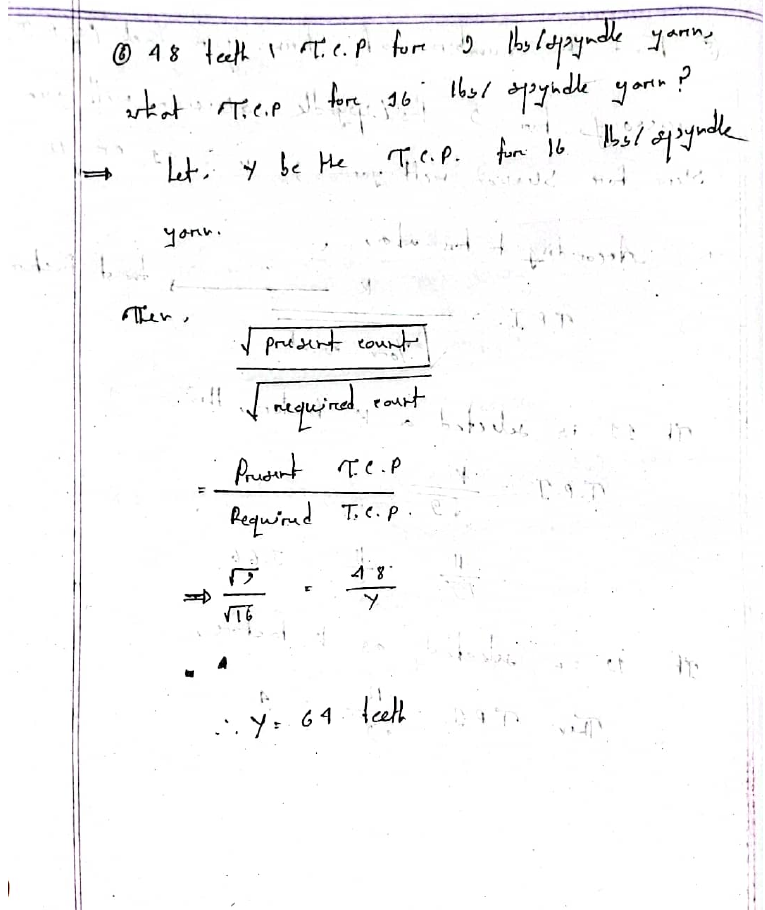 ⑥ 48 teeth T.C.P for 9 lbs/spyndle yarn,
what T.C.P for 16 lbs/ spyndle yarn?
⇒ Let, Y be the T.C.P. for 16 lbs/ spyndle
yarn.
Then,
√present count
√required count
= Present T.C.P
Required T.C.P.
⇒ √9/√16 = 48/Y
∴ Y = 64 teeth